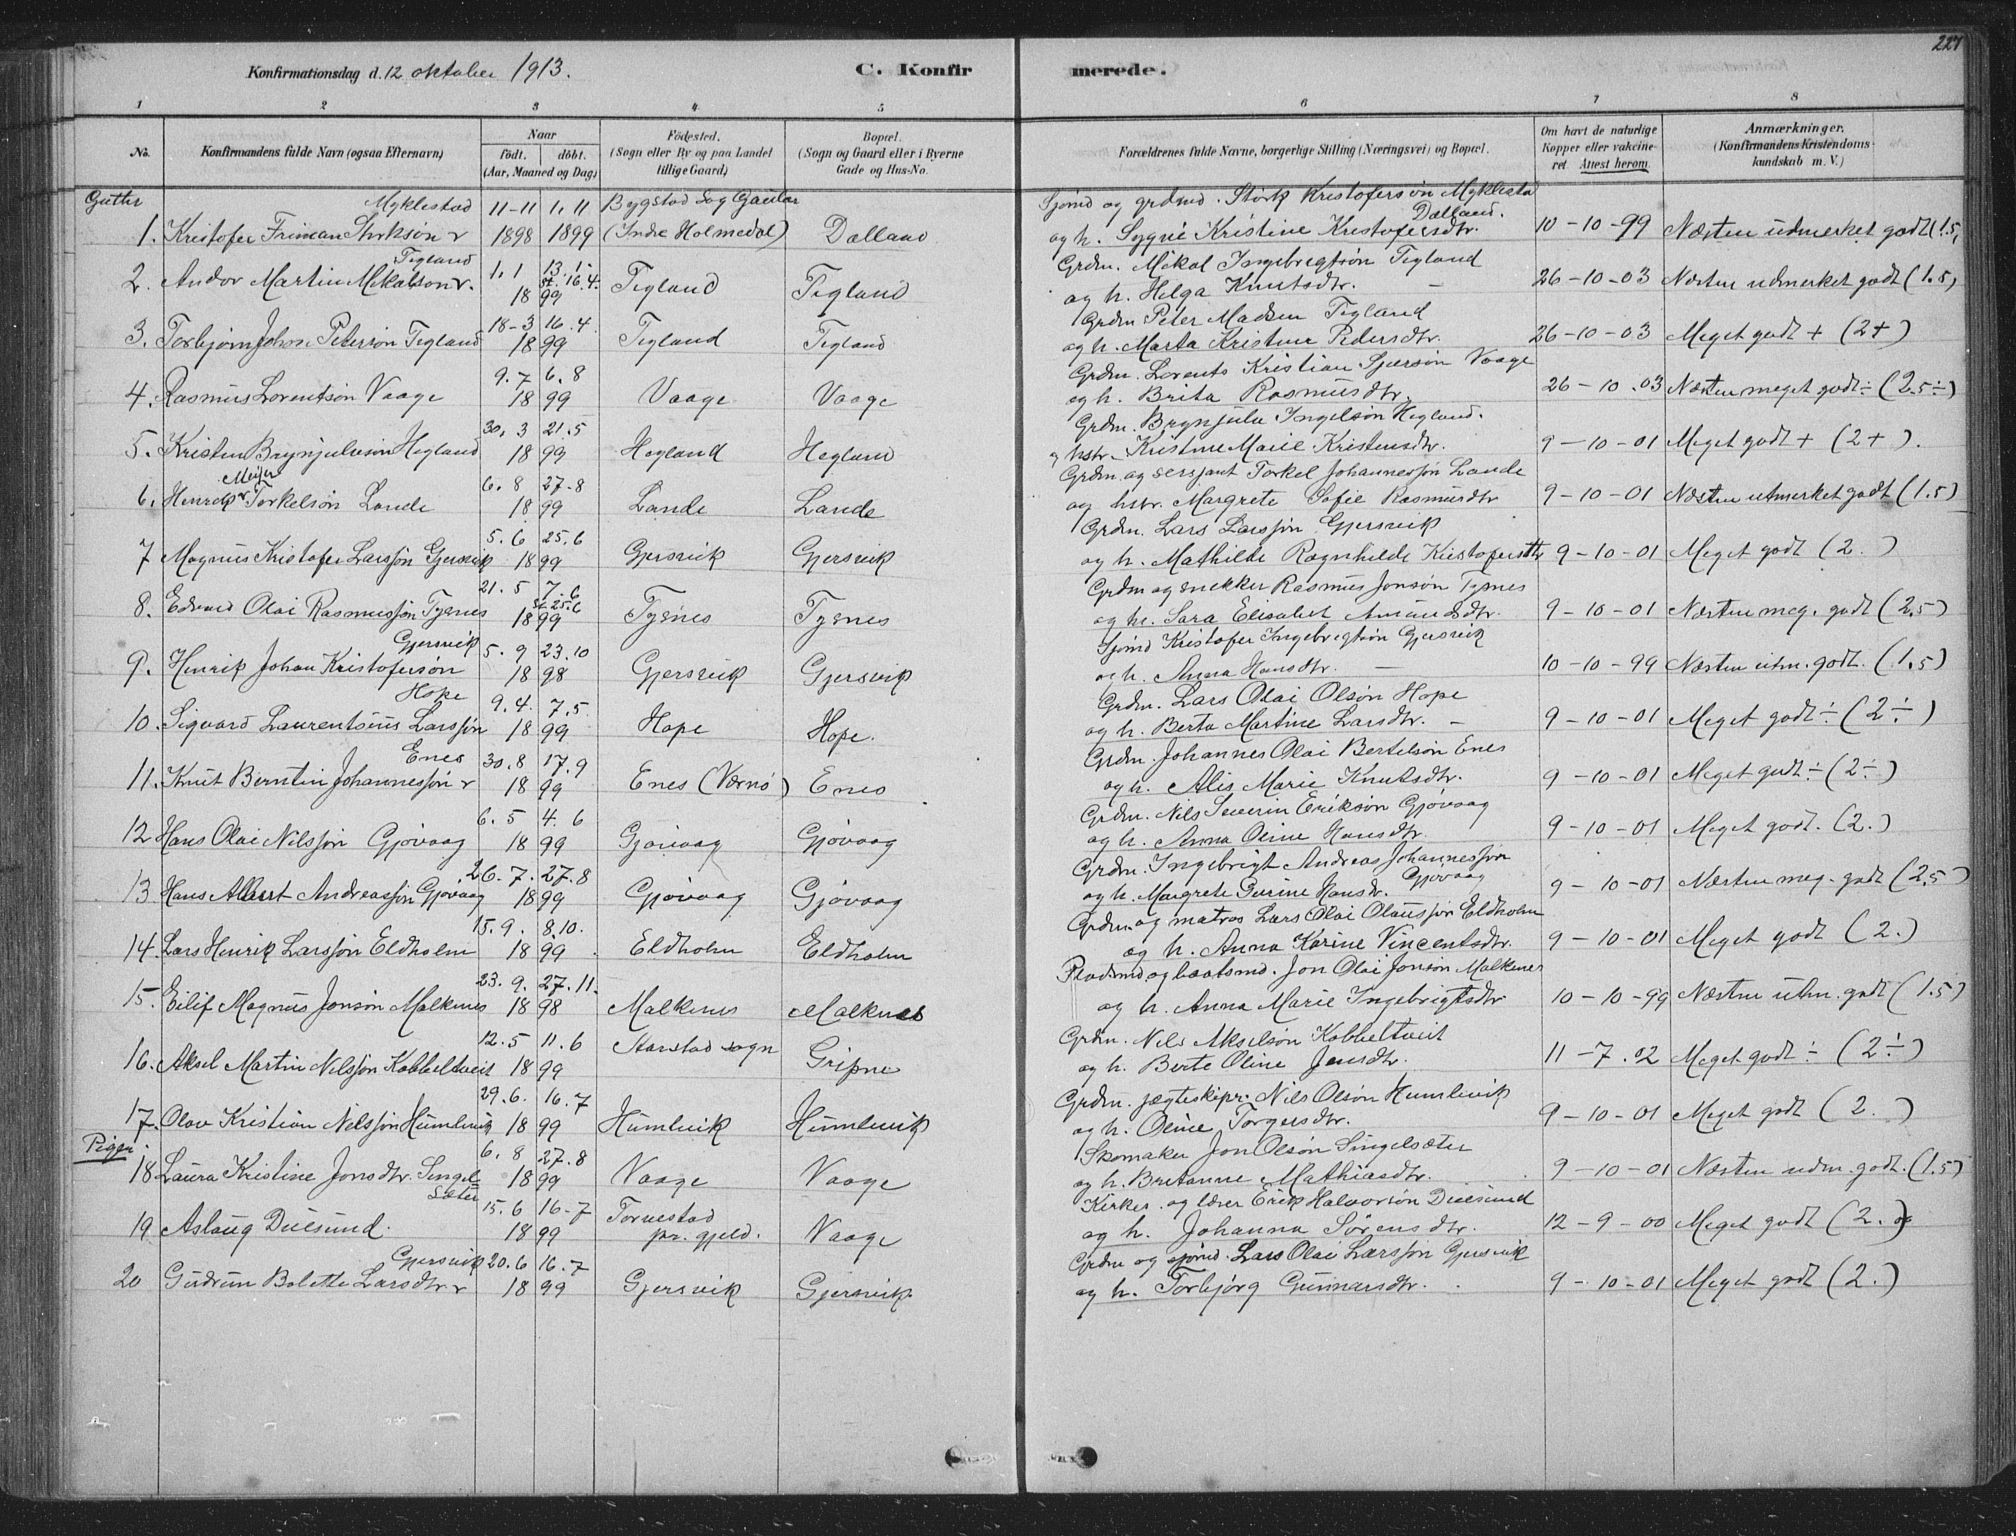 227
Konfirmationsdag d. 12 oktober 1913.
C. Konfirmerede.
1 2 3 4 5 6 7 8
No.
Konfirmandens fulde Navn (ogsaa Efternavn)
Naar
födt. döbt.
(Aar, Maaned og Dag)
Födested.
(Sogn eller By og paa Landet tillige Gaard)
Bopæl.
(Sogn og Gaard eller i Byerne Gade og Hus-No.
Forældrenes fulde Navne, borgerlige Stilling (Næringsvei) og Bopæl.
Om havt de naturlige Kopper eller vaccineret. Attest herom.
Anmærkninger.
(Konfirmandens Kristendomskundskab m. V.)
Gutter
Myklestad 11-11 1.11 Bygstad Sogn Gaular Sjømd og grdmd. Kristofersön Myklestad
1. Kristofer 1898 1899 (Indre Holmedal) Dalland og h. Kristine Kristofersdtr. Dalland. 10-10-99 Næsten udmerket godt (1.5)
Tegland 1.1 13.1. Grdm. Mikal Ingebregtsön Tegland
2. Andor Martin Mikalson st. 16.4. 1899 Tegland Tegland og h. Helga Knutsdtr. 26-10-03 Næsten udmerket godt (1.5)
18-3 16.4 Grdm Peter Madsen Tegland
3. Torbjørn Johan Petersön Tegland 1899 Tegland Tegland og h. Marta Kristine Pedersdtr. 26-10-03 Meget godt + (2+)
9.7 6.8 Grdm. Lorents Kristian Vaage
4. Rasmus Lorentsön Vaage 1899 Vaage Vaage og h. Brita Rasmusdtr. 26-10.03 Næsten meget godt ÷ (2.5÷)
30.3 21.5 Grdm. Brynjulv Hegland.
5. Kristen Brynjulvsön Hegland 1899 Hegland Hegland og hstr. Kristine Marie Kristensdtr. 9-10-01 Meget godt + (2+).
6.8 27.8 Grdm og sersjant Torkel Johannessön Lande
6. Henrik Torkelsön Lande 1899 Lande Lande og hstr. Margrete Sofie Rasmusdtr 9-10-01 Næsten utmerket godt (1.5)
5.6 25.6 Grdm. Lars Larssön Gjersvik
7 Magnus Kristofer Larssön Gjersvik 1899 Gjersvik Gjersvik og h. Mathilde Ragnhilde Kristofersdtr 9-10-01 Meget godt (2.)
21.5 7.6 Grdm og snekker Rasmus Jonsön Tysnes
8. Edvard Olai Rasmussön Tysnes st 25.6 1899 Tysnes Tysnes og h. Sara Elisabet Amundsdtr. 9-10-01 Næsten meg. godt (2.5)
Gjersvik 5.9 23.10 Sjømd Kristofer Ingebregtsön Gjersvik
9. Henrik Johan Kristofersön 1898 Gjersvik Gjersvik og h. Anna Hansdtr. 10-10-99 Næsten utm. godt. (1.5)
Hope 9.4. 7.5 Grdm. Lars Olai Olsön Hope
10. Sigvard Laurentsius Larssön 1899 Hope Hope. og h. Berta Martine Larsdtr. 9-10-01 Meget godt ÷ (2÷)
Enes 30.8 17.9 Grdm. Johannes Olai Bertelsön Enes
11. Knut Berntin Johannessön 1899 Enes (Værnø) Enes og h. Alis Marie Knutsdtr. 9-10-01 Meget godt ÷ (2÷)
6.5 4.6 Grdm. Nils Severin Eriksön Gjövaag
12 Hans Olai Nilssön Gjövaag 1899 Gjövaag Gjövaag og h. Anna Oline Hansdtr. 9-10-01 Meget godt. (2.)
26.7. 27.8 Grdm. Ingebrigt Andreas Johannessön
13 Hans Albert Andreassön Gjövaag 1899 Gjövaag Gjövaag og h. Margrete Hansdr. Gjövaag 9-10-01 Næsten meg. godt (2.5)
15.9. 8.10. Grdm. og matros Lars Olai Olaussön Eldholm
14. Lars Henrik Larssön Eldholm 1899 Eldholm Eldholm og h. Anna Karine Vincentsdtr. 9-10-01 Meget godt (2.)
23.9. 27.11. Pladsmd og baatsmd. Jon Olai Jonsön Malkenes
15. Eilif Magnus Jonsön Malkenes 1898 Malkenes Malknes og h. Anna Marie Ingebrigtsdtr 10-10-99 Næsten utm. godt (1.5)
12.5 11.6 Grdm. Nils Akselsön Kobbeltveit
16. Aksel Martin Nilssön Kobbeltveit 1899 Aarstad sogn Gripne og h. Berte Oline Jensdtr. 11-7.02 Meget godt ÷ (2÷)
29.6. 16.7 Grdm. jægteskipr. Nils Olsön Humlevik
17. Olav Kristian Nilssön Humlevik 1899 Humlevik Humlevik og h. Oline Torgersdtr. 9-10-01 Meget godt (2.)
Piger
6.8 27.8 Skomaker Jon Olsön Singelsæter
18 Laura Kristine Jonsdtr. Singelsæter 1899 Vaage Vaage og h. Britanne Mathiasdtr. 9-10-01 Næsten udm. godt. (1.5)
15.6 16-7 Kirkes. og lærer Erik Halvorsön Duesund
19 Aslaug Duesund. 1899 Torvestad pr. gjeld. Vaage og h. Johanna Sörensdtr. 12-9-00 Meget godt (2.)
Gjersvik 20.6 16.7 Grdm og sjømd. Lars Olai Larssön Gjersvik
20 Gudrun Bolette Larsdtr 1899 Gjersvik Gjersvik og h. Torbjörg Gunnarsdtr. 9-10-01 Meget godt (2.)